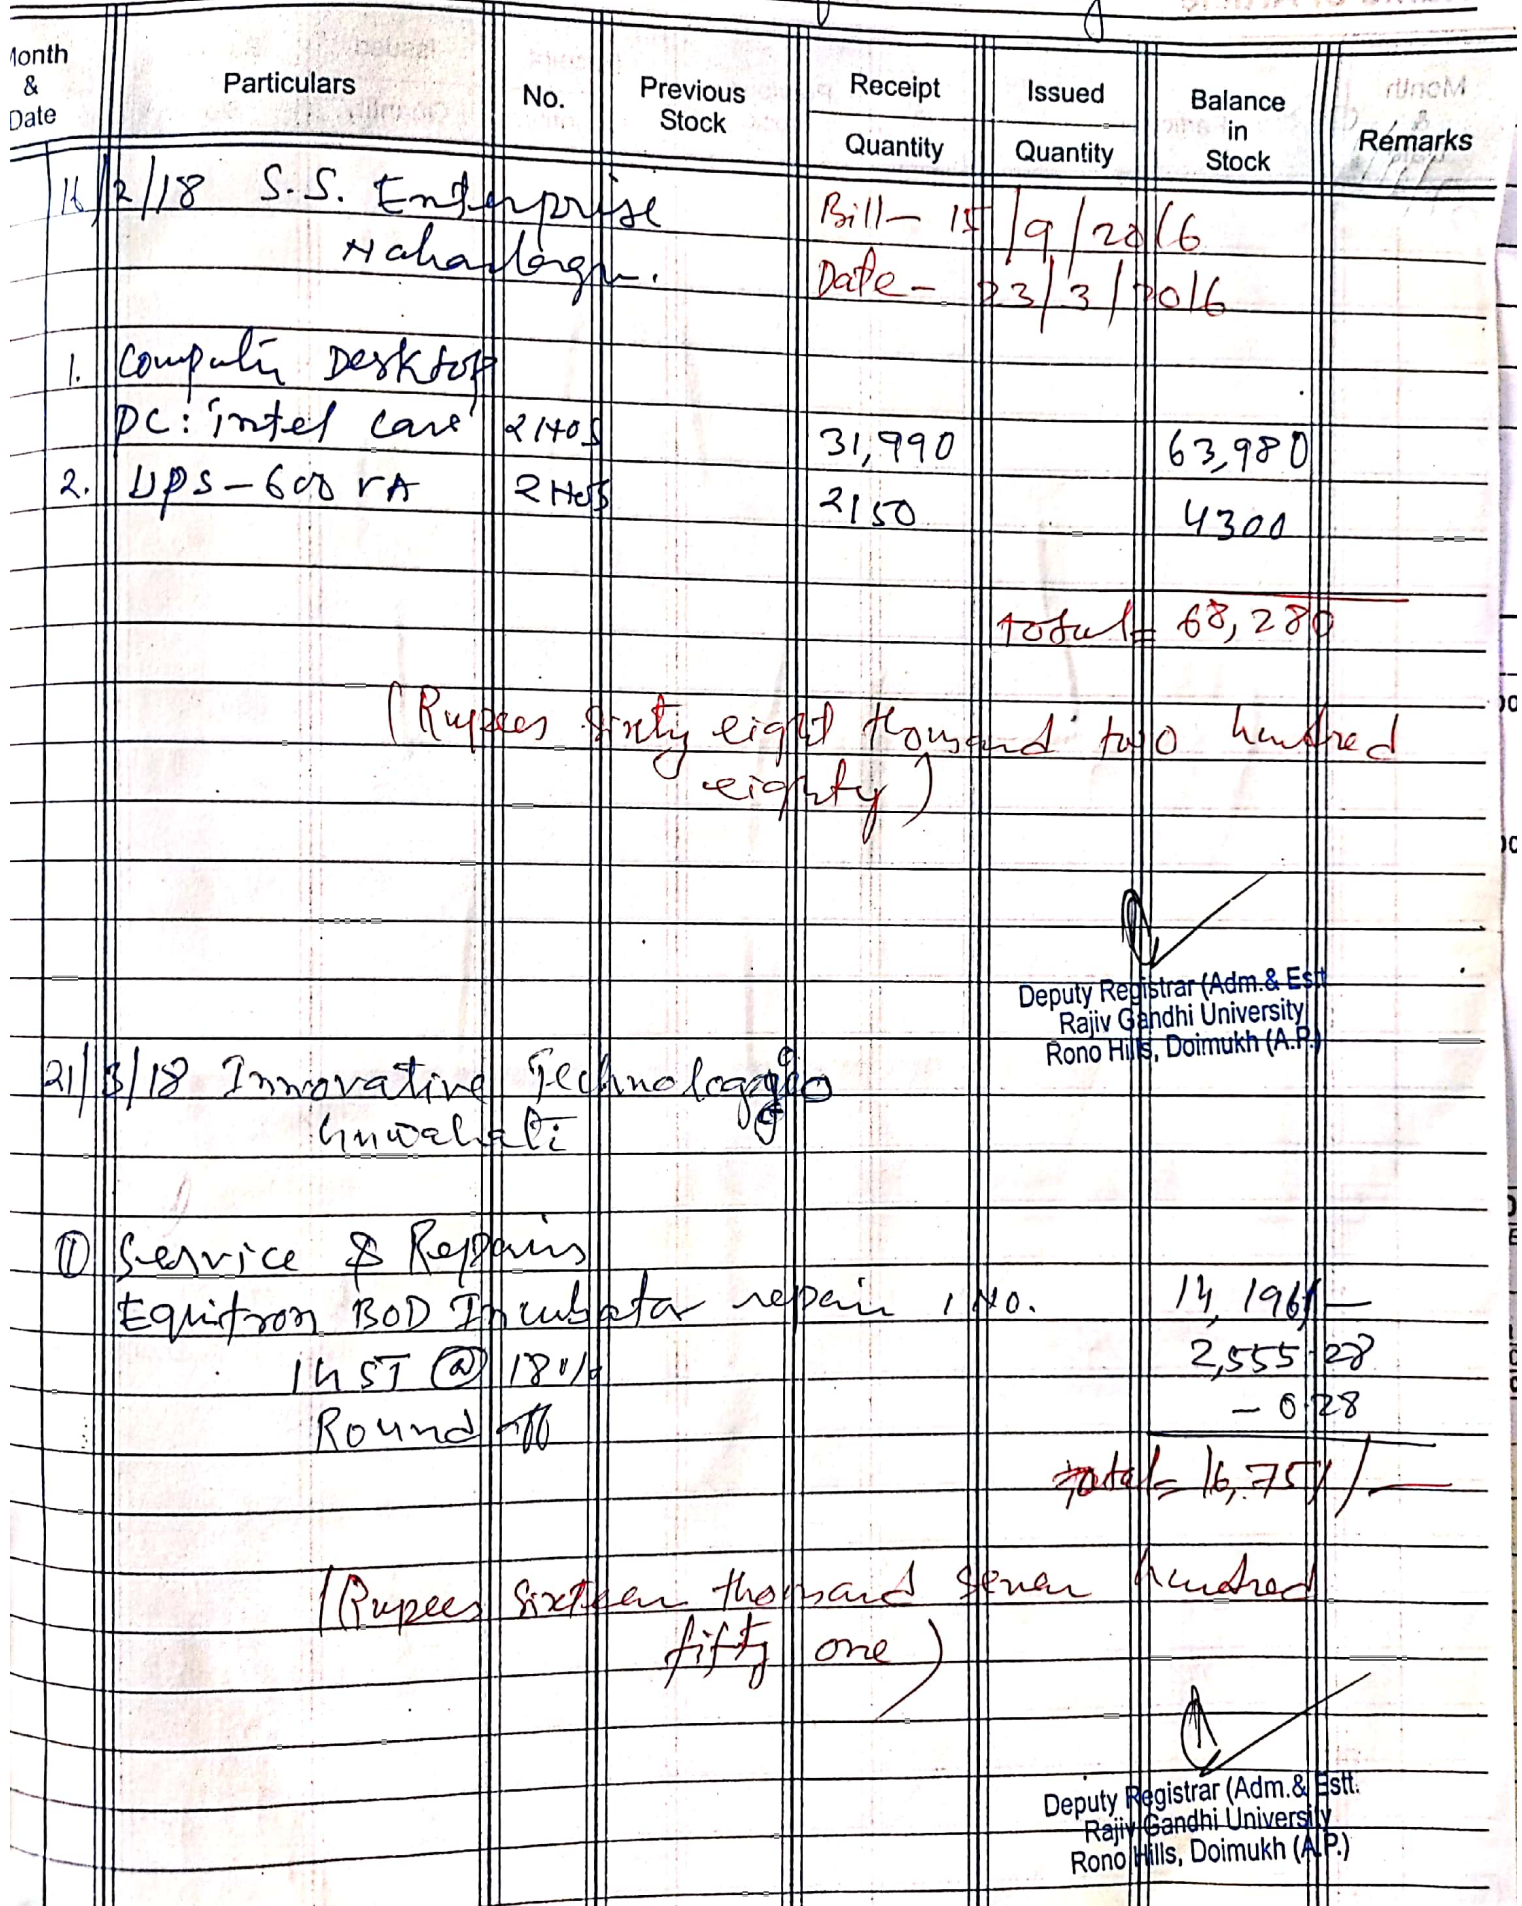 Month & Date Particulars No. Previous Stock Receipt Quantity Issued Quantity Balance in Stock Remarks
16/2/18 S.S. Enterprise Bill- 15/9/2016
Naharlagun. Date- 23/3/2016
1. Computer Desktop
PC: intel care 2 Nos 31,990 63,980
2. UPS-600 VA 2 Nos 2150 4300
total= 68,280
(Rupees Sixty eight thousand two hundred
eighty)
Deputy Registrar (Adm.& Estt
Rajiv Gandhi University
Rono Hills, Doimukh (A.P.)
21/3/18 Innovative Technologies
Guwahati
① Service & Repairs
Equitron BOD Incubator repair 1 No. 14,196/-
GST @ 18% 2,555.28
Round off - 0.28
total= 16,751/-
(Rupees Sixteen thousand Seven hundred
fifty one)
Deputy Registrar (Adm.& Estt.
Rajiv Gandhi University
Rono Hills, Doimukh (A.P.)